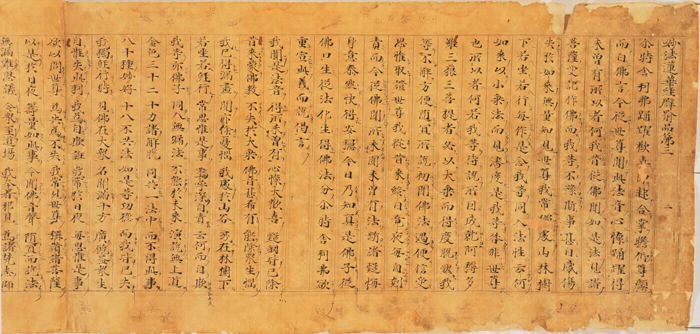 妙法蓮華經譬喻品第三
尒時舍利弗踊躍歡喜即起合掌瞻仰尊顏
而白佛言今從世尊聞此法音心懷踊躍得
未曾有所以者何我昔從佛聞如是法見諸
菩薩受記作佛而我等不豫斯事甚自感傷
失於如來無量知見世尊我常獨處山林樹
下若坐若行每作是念我等同入法性云何
如來以小乘法而見濟度是我等咎非世尊
也所以者何若我等待說所因成就阿耨多
羅三藐三菩提者必以大乘而得度脫然我
等不解方便隨宜所說初聞佛法遇便信受
思惟取證世尊我從昔來終日竟夜每自剋
責而今從佛聞所未聞未曾有法斷諸疑悔
身意泰然快得安隱今日乃知真是佛子從
佛口生從法化生得佛法分尒時舍利弗欲
重宣此義而說偈言
我聞是法音 得所未曾有 心懷大歡喜 疑網皆已除
昔來蒙佛教 不失於大乘 佛音甚希有 能除眾生惱
我已得漏盡 聞亦除憂惱 我處於山谷 或在林樹下
若坐若經行 常思惟是事 嗚呼深自責 云何而自欺
我等亦佛子 同入無漏法 不能於未來 演說無上道
金色三十二 十力諸解脫 同共一法中 而不得此事
八十種妙好 十八不共法 如是等功德 而我皆已失
我獨經行時 見佛在大眾 名聞滿十方 廣饒益眾生
自惟失此利 我為自欺誑 我常於日夜 每思惟是事
欲以問世尊 為失為不失 我常見世尊 稱讚諸菩薩
以是於日夜 籌量如是事 今聞佛音聲 隨宜而說法
無漏難思議 令眾至道場 我本著邪見 為諸梵志師